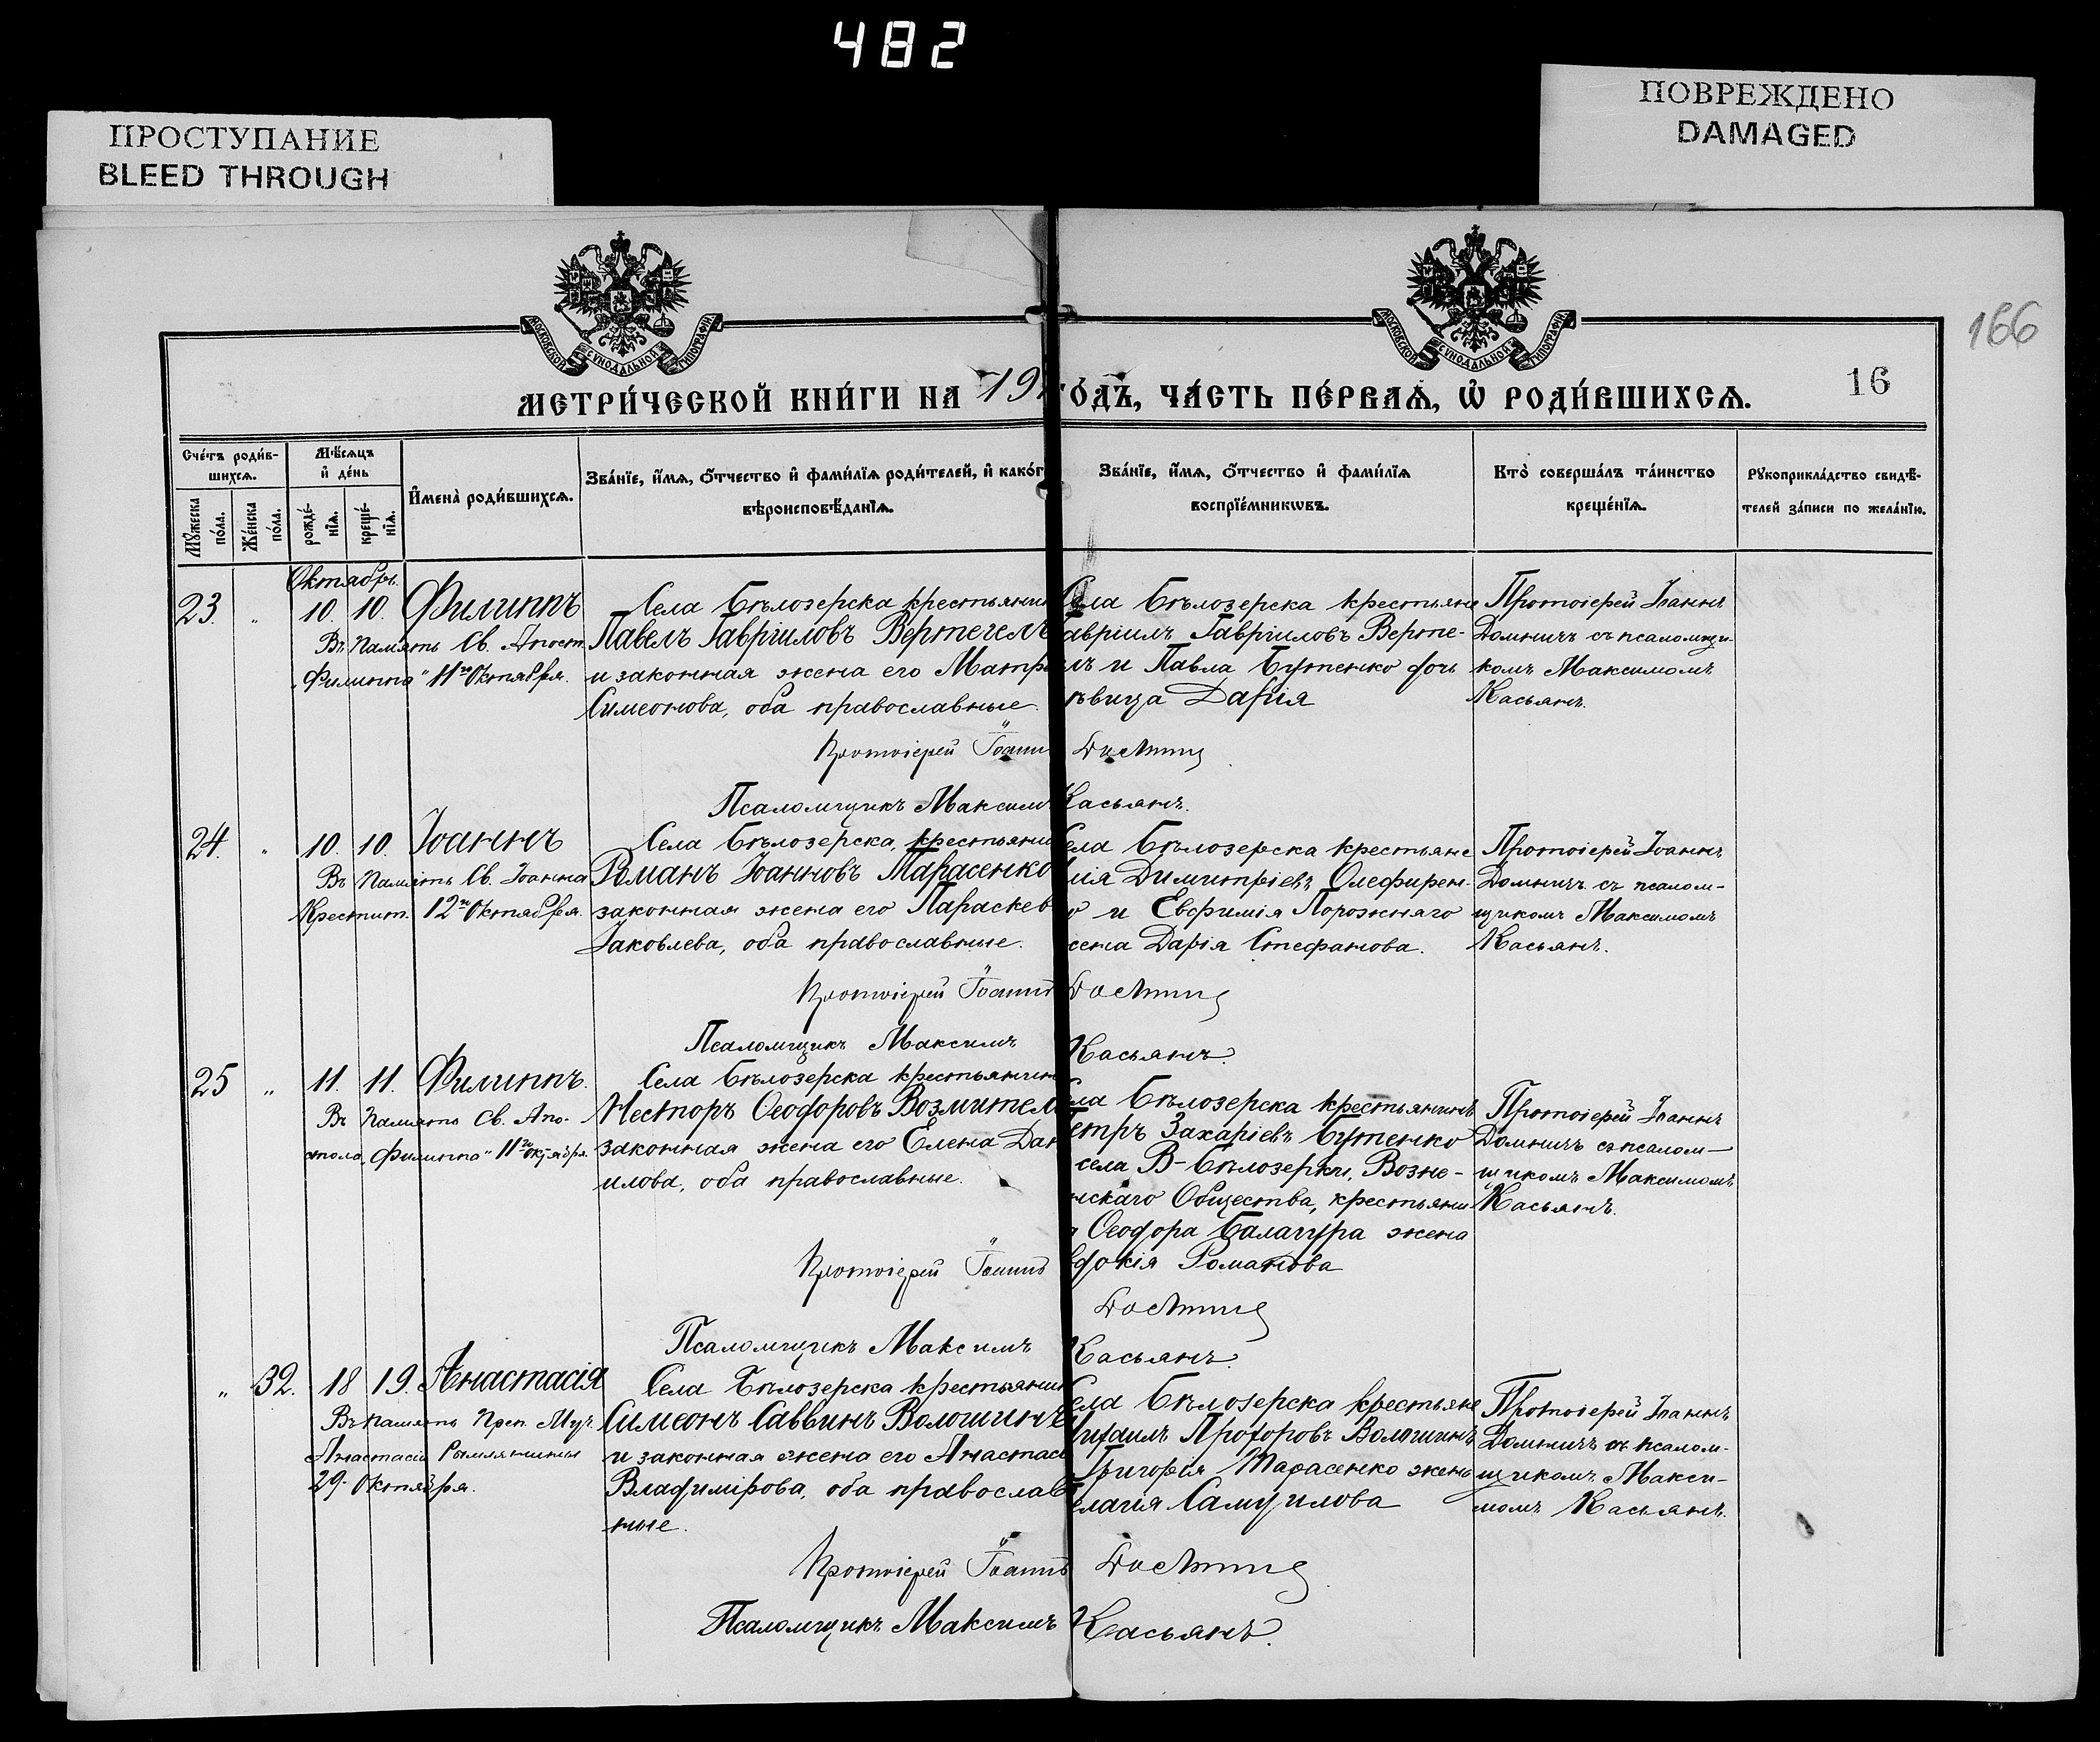 482
ПРОСТУПАНИЕ
BLEED THROUGH
ПОВРЕЖДЕНО
DAMAGED
МОСКОВСКОЙ СУНОДАЛЬНОЙ ТИПОГРАФІИ
МОСКОВСКОЙ СУНОДАЛЬНОЙ ТИПОГРАФІИ
166
МЕТРИ́ЧЕСКОЙ КНИ́ГИ НА 19
ГО́ДЪ, ЧА́СТЬ ПЕ́РВАѦ, Ѡ҆ РОДИ́ВШИХСѦ.
16
Сче́тъ роди́в-
шихсѧ.
Мꙋ́жеска по́ла.
Же́нска по́ла.
Мѣ́сѧцъ
и҆ де́нь
рожде́-
нїѧ.
креще́-
нїѧ.
И҆мена̀ роди́вшихсѧ.
Зва́нїе, и҆́мѧ, ѻ҆́тчество и҆ фами́лїѧ роди́телей, и҆ како́г
вѣроисповѣ́данїѧ.
Зва́нїе, и҆́мѧ, ѻ҆́тчество и҆ фами́лїѧ
воспрїе́мникѡвъ.
Кто̀ соверша́лъ та́инство
креще́нїѧ.
Рꙋкоприкла́дство свидѣ́-
телей за́писи по жела́нїю.
Октябрь.
23. " 10. 10. Филиппъ
Въ память Св. Апост.
„Филиппа" 11го Октября.
Села Бѣлозерска крестьянин
Павелъ Гавріиловъ Вертегелъ
и законная жена его Матр
Симеонова, оба православные.
Села Бѣлозерска крестьяне
авріилъ Гавріиловъ Верте-
лъ и Павла Бутенко дочь
ѣвица Дарія
Протоіерей Іоаннъ
Домничъ съ псаломщи-
комъ Максимомъ
Касьянъ.
Протоіерей Іоанн
Псаломщикъ Максимъ Касьянъ.
24. " 10. 10. Іоаннъ
Въ память Св. Іоанна
Крестит. 12го Октября.
Села Бѣлозерска, крестьянин
Романъ Іоанновъ Тарасенко
законная жена его Параскев
Іаковлева, оба православные.
ела Бѣлозерска крестьяне
лія Димитріевъ Олефирен-
о и Евфимія Порожняго
жена Дарія Стефанова.
Протоіерей Іоаннъ
Домничъ съ псалом-
щикомъ Максимомъ
Касьянъ.
Протоіерей Іоаннъ
Псаломщикъ Максимъ Касьянъ.
25 " 11. 11. Филиппъ.
Въ память Св. Апо-
стола „Филиппа" 11го Октября.
Села Бѣлозерска крестьянин
Несторъ Ѳеодоровъ Возмител
законная жена его Елена Дан
илова, оба православные.
ела Бѣлозерска крестьянинъ
Петръ Захаріевъ Бутенко
села В-Бѣлозерки, Возне-
нскаго Общества, крестьяни-
а Ѳеодора Балагура жена
вдокія Романова
Протоіерей Іоаннъ
Домничъ съ псалом-
щикомъ Максимомъ
Касьянъ.
Протоіерей Іоаннъ
Псаломщикъ Максимъ Касьянъ.
" 32. 18 19. Анастасія
Въ память Преп. Муч.
Анастасіи Римлянины
29. Октября.
Села Бѣлозерска крестьянин
Симеонъ Саввинъ Волошинъ
и законная жена его Анастасі
Владимірова, оба православ
ные.
ела Бѣлозерска крестьяне
Михаилъ Прохоровъ Волошинъ
Григорія Тарасенко жена
елагія Самуилова
Протоіерей Іоаннъ
Домничъ съ псалом-
щикомъ Макси-
момъ Касьянъ.
Протоіерей Іоаннъ
Псаломщикъ Максимъ Касьянъ.